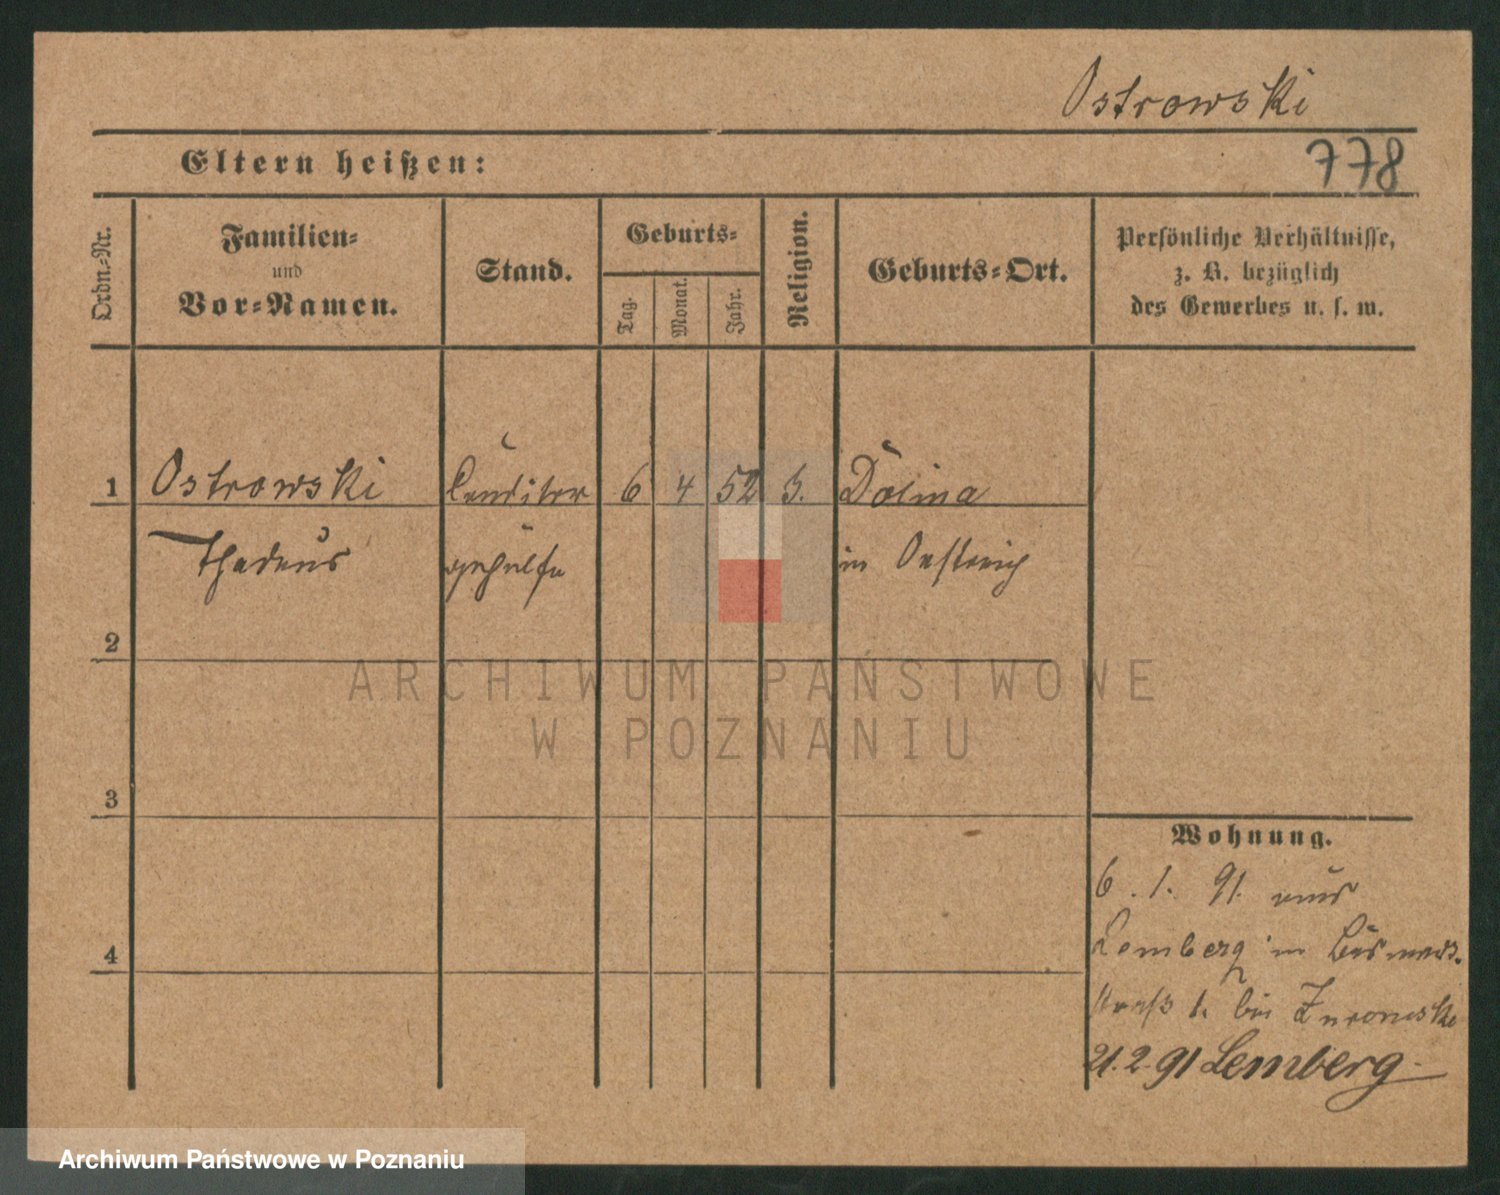 Ostrowski
Eltern heißen:
778
Ordn.-Nr.
Familien-
und
Vor-Namen.
Stand.
Geburts-
Tag.
Monat.
Jahr.
Religion.
Geburts-Ort.
Persönliche Verhältnisse,
z. B. bezüglich
des Gewerbes u. s. w.
1 Ostrowski Conditor 6 4 52 Dolina
Thadeus gehülfe in Oestreich
2
3
4
ARCHIWUM PAŃSTWOWE
W POZNANIU
Wohnung.
6. 1. 91. aus
Lemberg in Bismark
straß 1. bei Zuromski
21.2.91 Lemberg
Archiwum Państwowe w Poznaniu